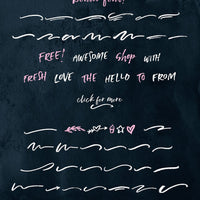 FREE! AWESOME Shop WITH
FRESH LOVE THE HELLO TO FROM
click for more